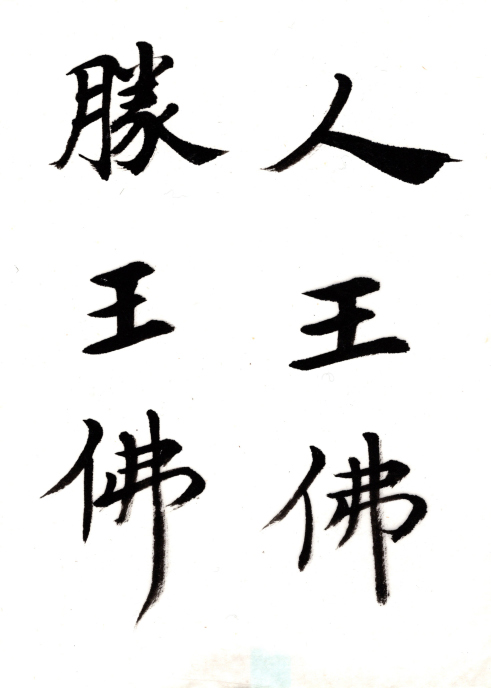 人王佛
勝王佛